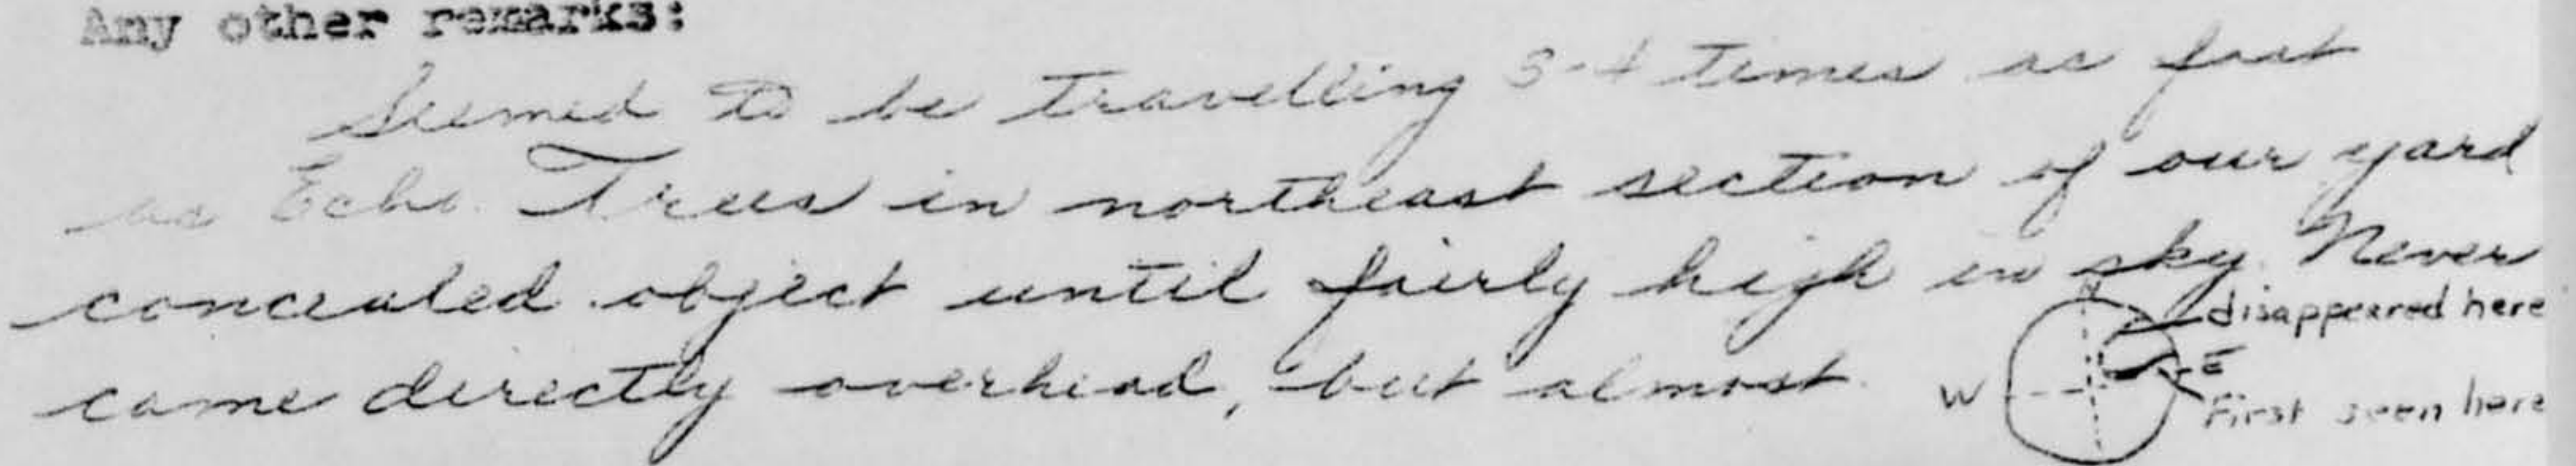 Any other remarks:
Seemed to be travelling 3-4 times as fast
as Echo. Trees in northeast section of our yard
concealed object until fairly high in sky. Never
came directly overhead, but almost.
N
disappeared here
E
W
First seen here